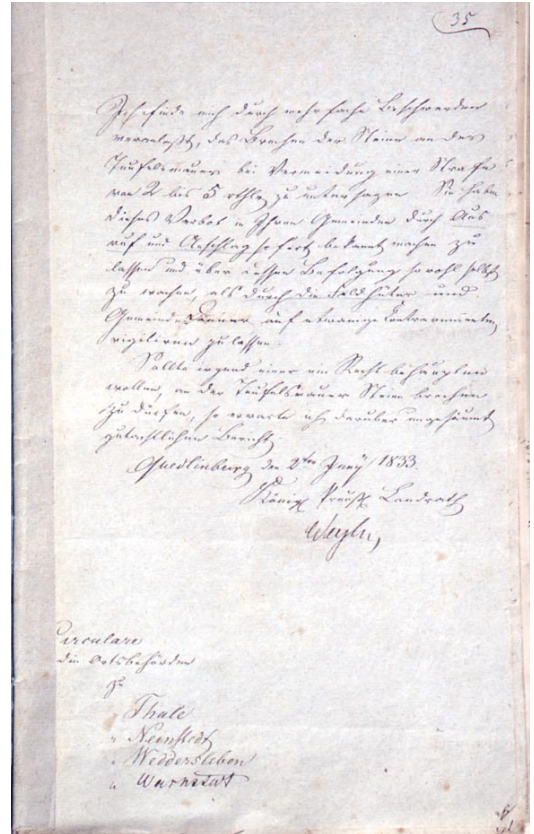 35
Ich finde mich durch mehrfache Beschwerden
veranlaßt, das Brechen der Steine an der
Teufelsmauer bei Vermeidung einer Strafe
von 2 bis 5 rthlr zu untersagen. Sie haben
dieses Verbot in Ihren Gemeinden durch Aus
ruf und Anschlag sofort bekannt machen zu
lassen und über dessen Befolgung sowohl selbst
zu wachen, als durch die Feldhüter und
Gemeinde Diener auf etwanige Contravenienten
vigiliren zu lassen.
Sollte irgend einer ein Recht behaupten
wollen, an der Teufelsmauer Steine brechen
zu dürfen, so erwarte ich darüber ungesäumt
gutachtlichen Bericht.
Quedlinburg den 2ten Juny 1833.
Königl Preuß Landrath
Weyhe
Circulare
die Ortsbehörden
zu
Thale
" Neinstedt
" Weddersleben
" Warnstedt